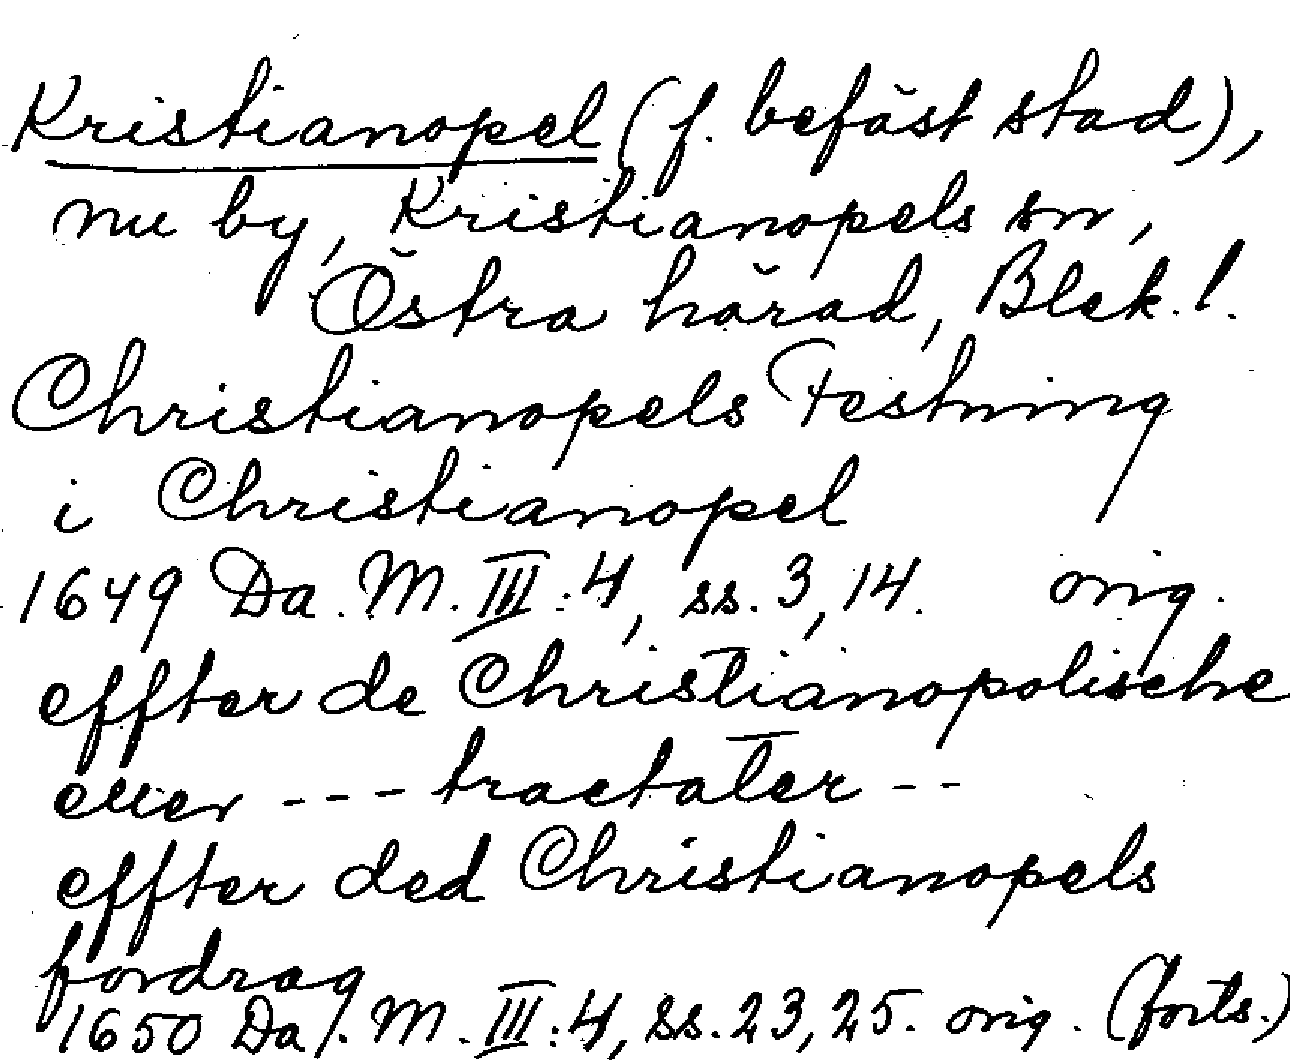 Kristianopel (f. befäst stad),
nu by, Kristianopels sn,
Östra härad, Blek. l.
Christianopels Festning
i Christianopel
1649 Da. M. III:4, ss. 3, 14. orig.
effter de Christianopolische
eller --- tractater --
effter ded Christianopels
fordrag
1650 Da. M. III:4, ss. 23, 25. orig. (forts.)